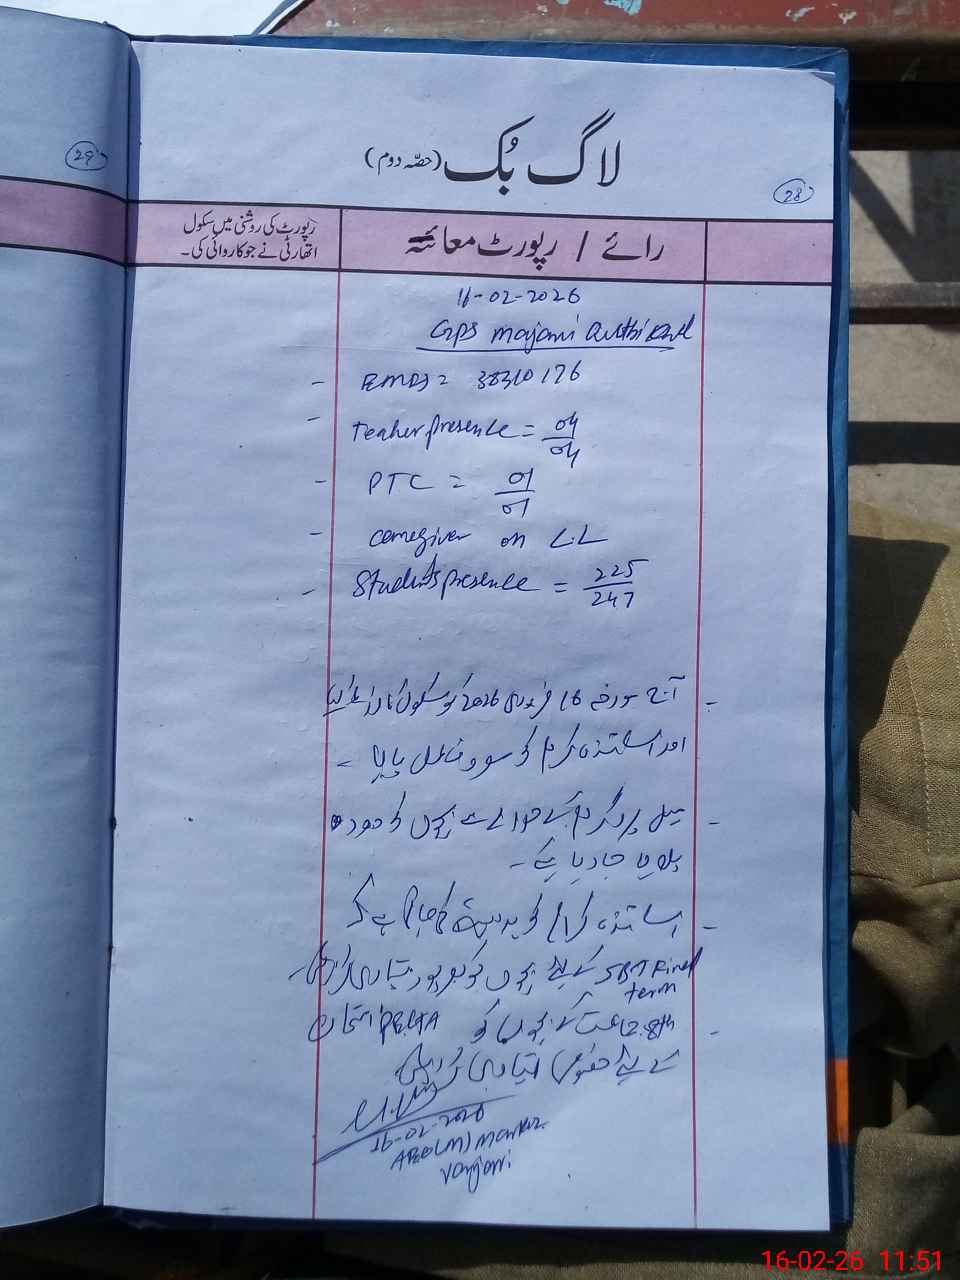 29
لاگ بُک (حصّہ دوم)
28
رائے / رپورٹ معائنہ
رپورٹ کی روشنی میں سکول
اتھارٹی نے جو کاروائی کی۔
16-02-2026
GPS Majani
EMIS = 38310176
Teacher presence = 04/04
PTC = 01/01
caregiver on C.L
Students presence = 225/247
آج مورخہ 16 فروری 2026 کو سکول کا
اور اساتذہ کرام کو پایا -
پروگرام کے حوالے سے بچوں کو دودھ
پلایا جا رہا ہے -
اساتذہ کرام کو ہدایت کی جاتی ہے کہ
SBA Final term کے لیے بچوں کو بھرپور تیاری
کے بچوں کو PECTA امتحان
کے لیے خصوصی تیاری
16-02-2026
AEO (M) Markaz
Vanjari
16-02-26 11:51